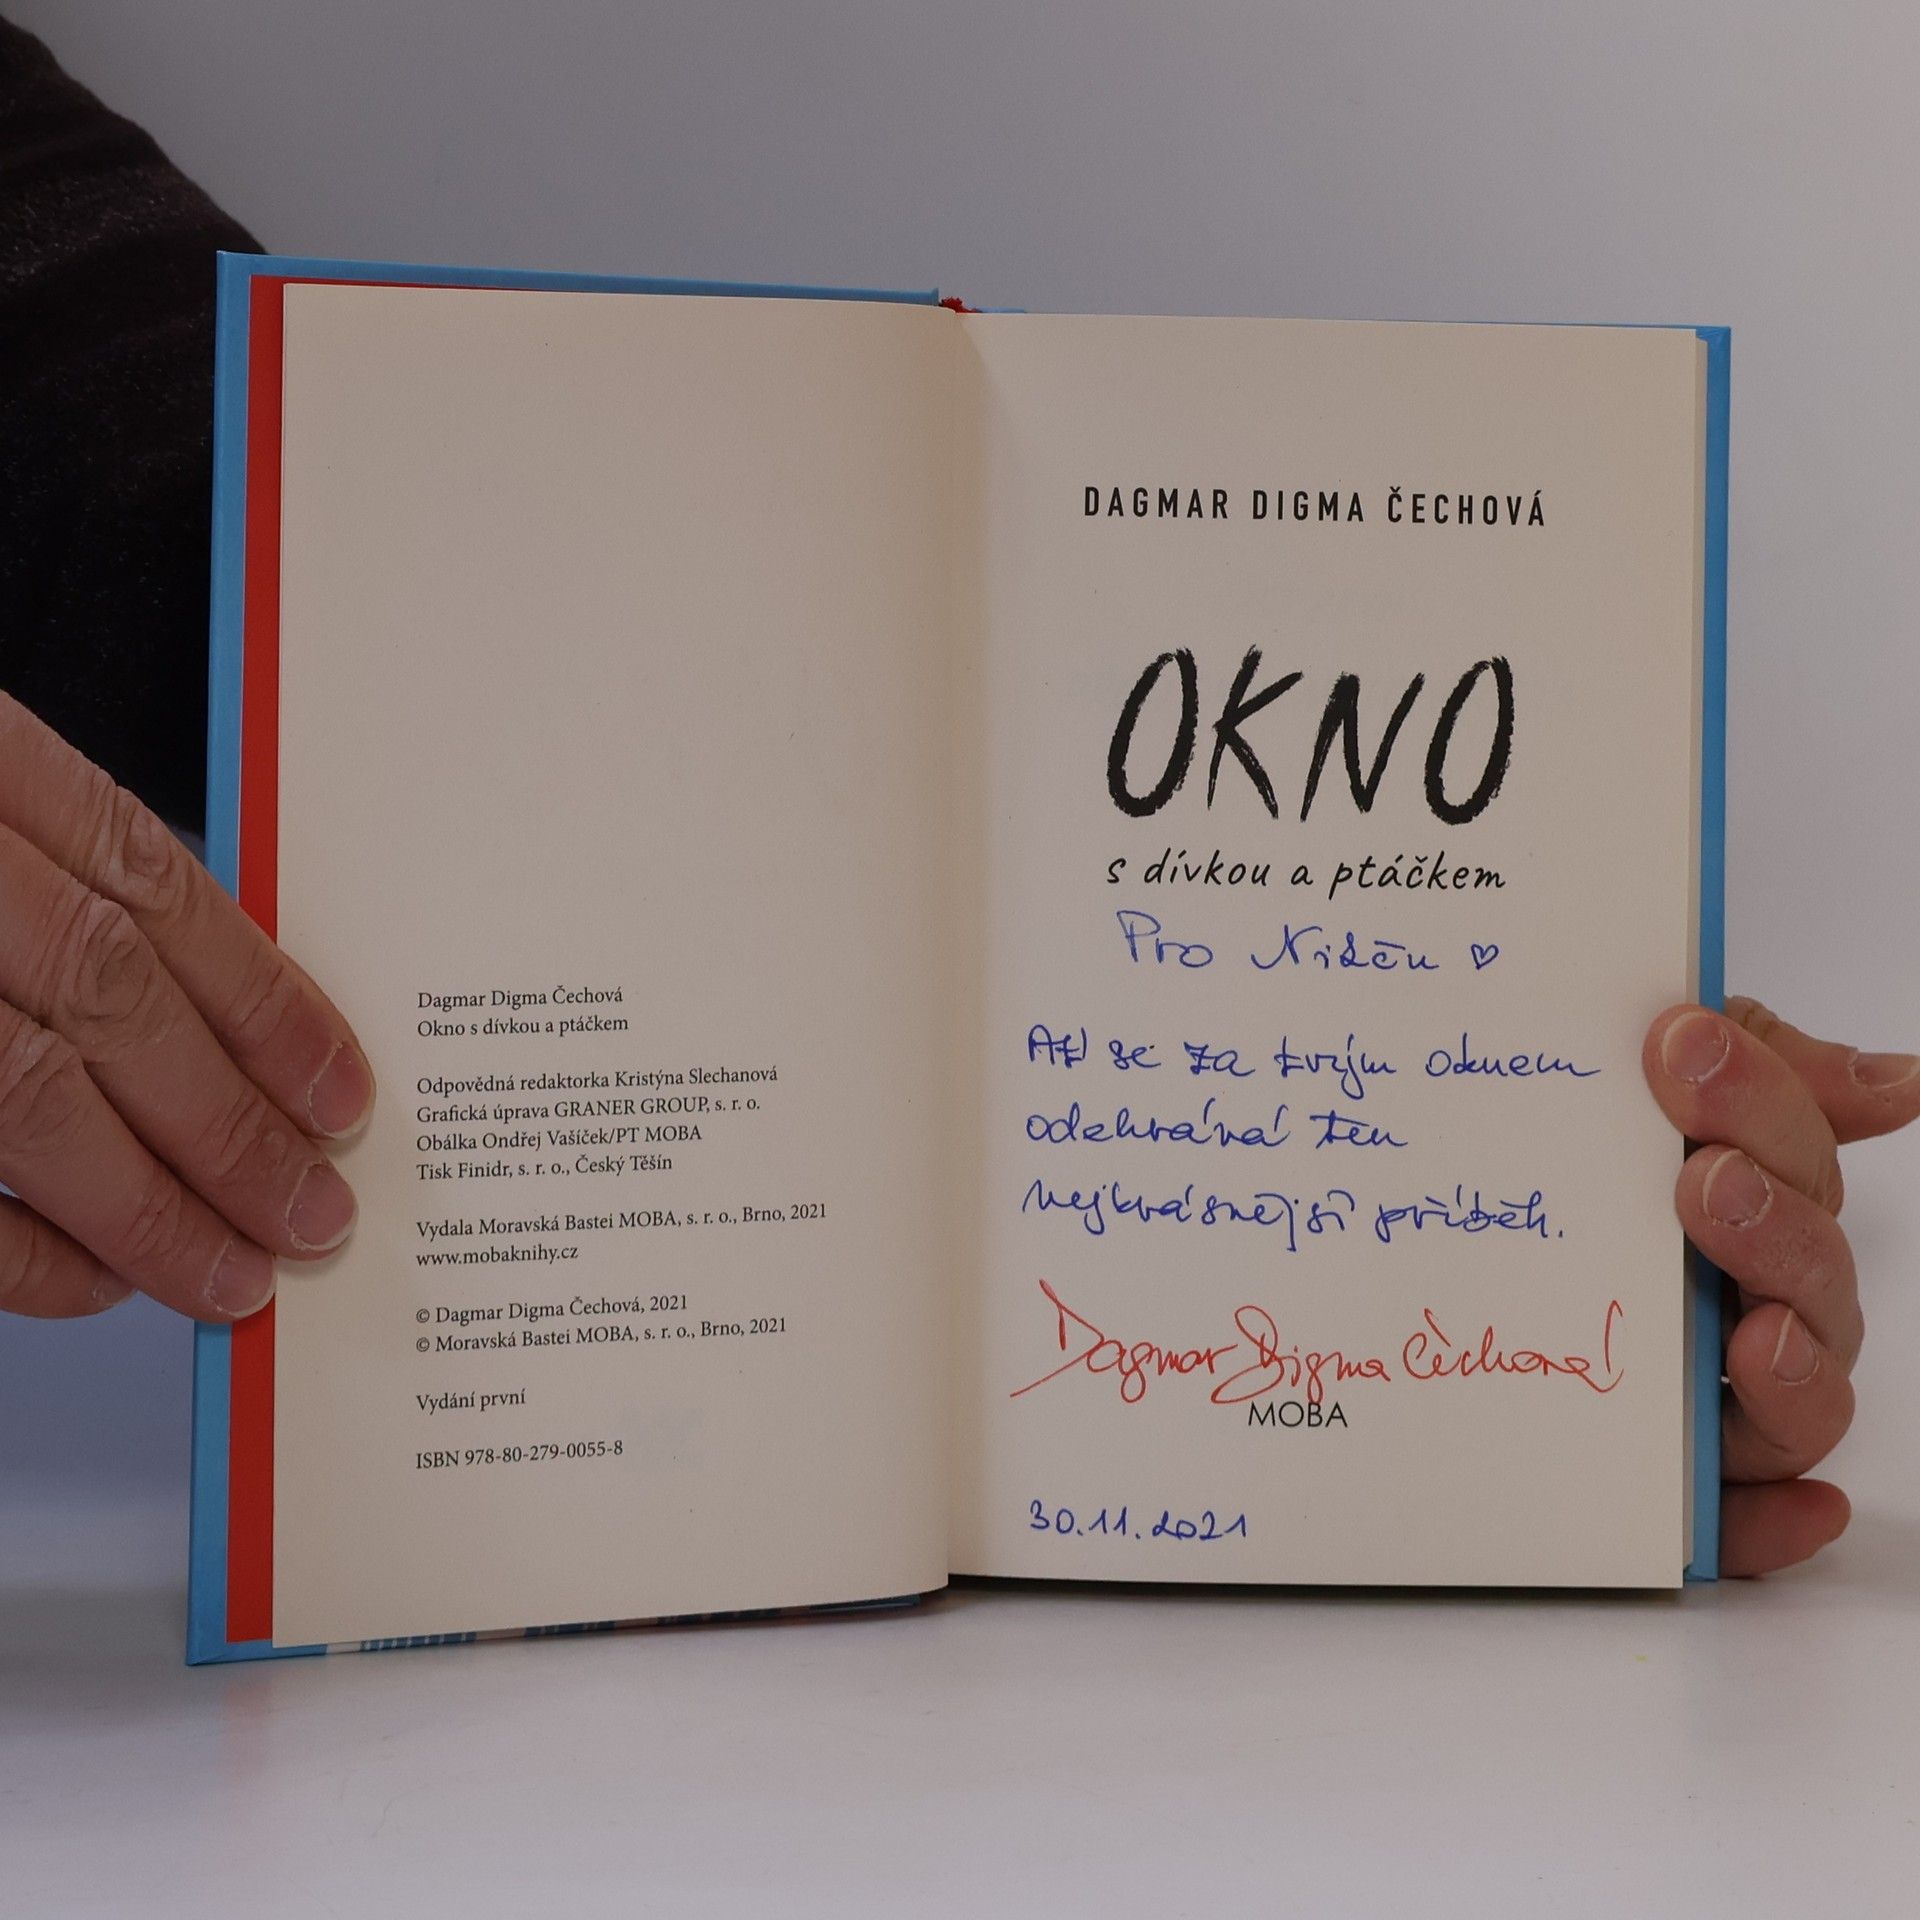 Dagmar Digma Čechová
Okno s dívkou a ptáčkem
Odpovědná redaktorka Kristýna Slechanová
Grafická úprava GRANER GROUP, s. r. o.
Obálka Ondřej Vašíček/PT MOBA
Tisk Finidr, s. r. o., Český Těšín
Vydala Moravská Bastei MOBA, s. r. o., Brno, 2021
www.mobaknihy.cz
© Dagmar Digma Čechová, 2021
© Moravská Bastei MOBA, s. r. o., Brno, 2021
Vydání první
ISBN 978-80-279-0055-8
DAGMAR DIGMA ČECHOVÁ
OKNO
s dívkou a ptáčkem
Pro
Ať se za tvým oknem
odehrává ten
nejkrásnější příběh.
Dagmar Digma Čechová
MOBA
30.11.2021